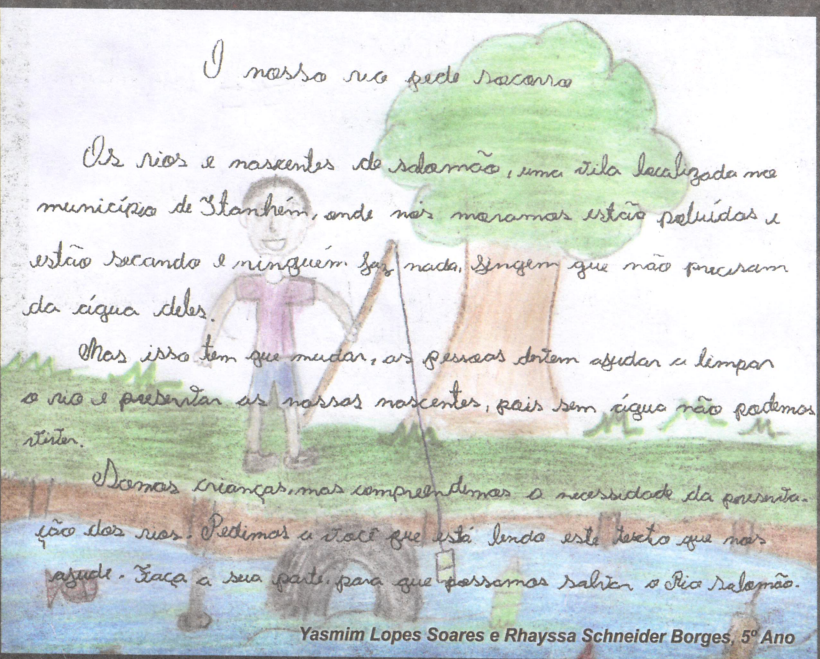 O nosso rio pede socorro
Os rios e nascentes de salomão, uma vila localizada no
município de Itanhém, onde nós moramos estão poluídos e
estão secando e ninguém faz nada, fingem que não precisam
da água deles.
Mas isso tem que mudar, as pessoas devem ajudar a limpar
o rio e preservar as nossas nascentes, pois sem água não podemos
viver.
Somos crianças, mas compreendemos a necessidade da preserva-
ção dos rios. Pedimos a você que está lendo este texto que nos
ajude. Faça a sua parte, para que possamos salvar o Rio salomão.
Yasmim Lopes Soares e Rhayssa Schneider Borges, 5º Ano